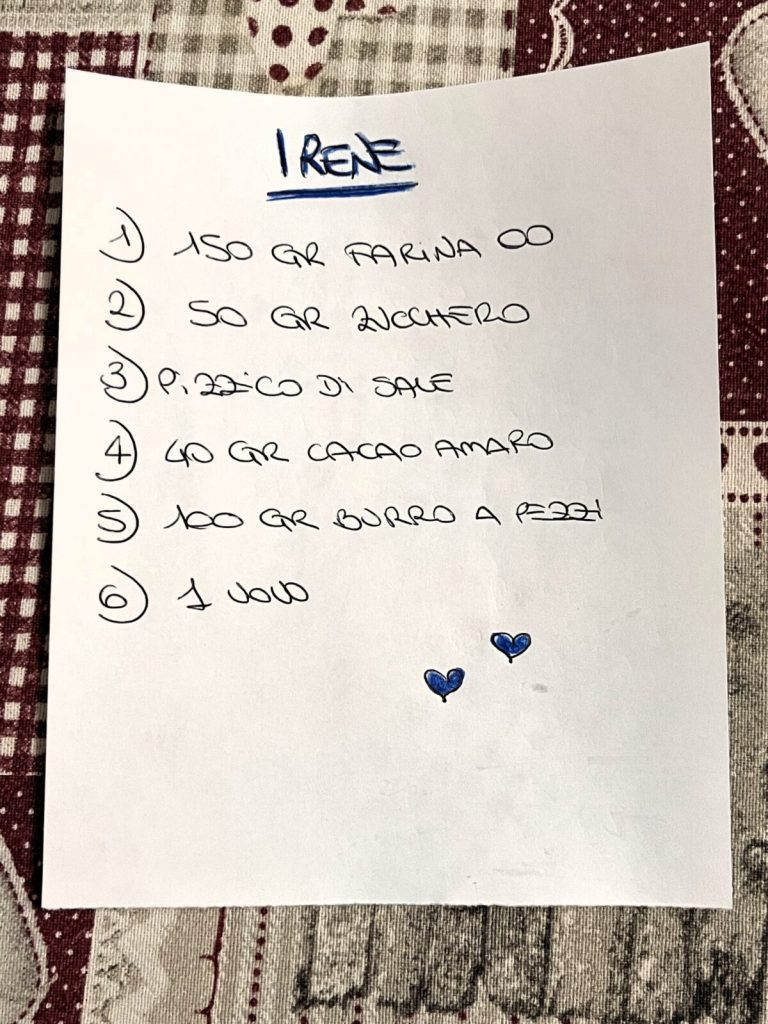 IRENE
1) 150 GR FARINA 00
2) 50 GR ZUCCHERO
3) PIZZICO DI SALE
4) 40 GR CACAO AMARO
5) 100 GR BURRO A PEZZI
6) 1 UOVO